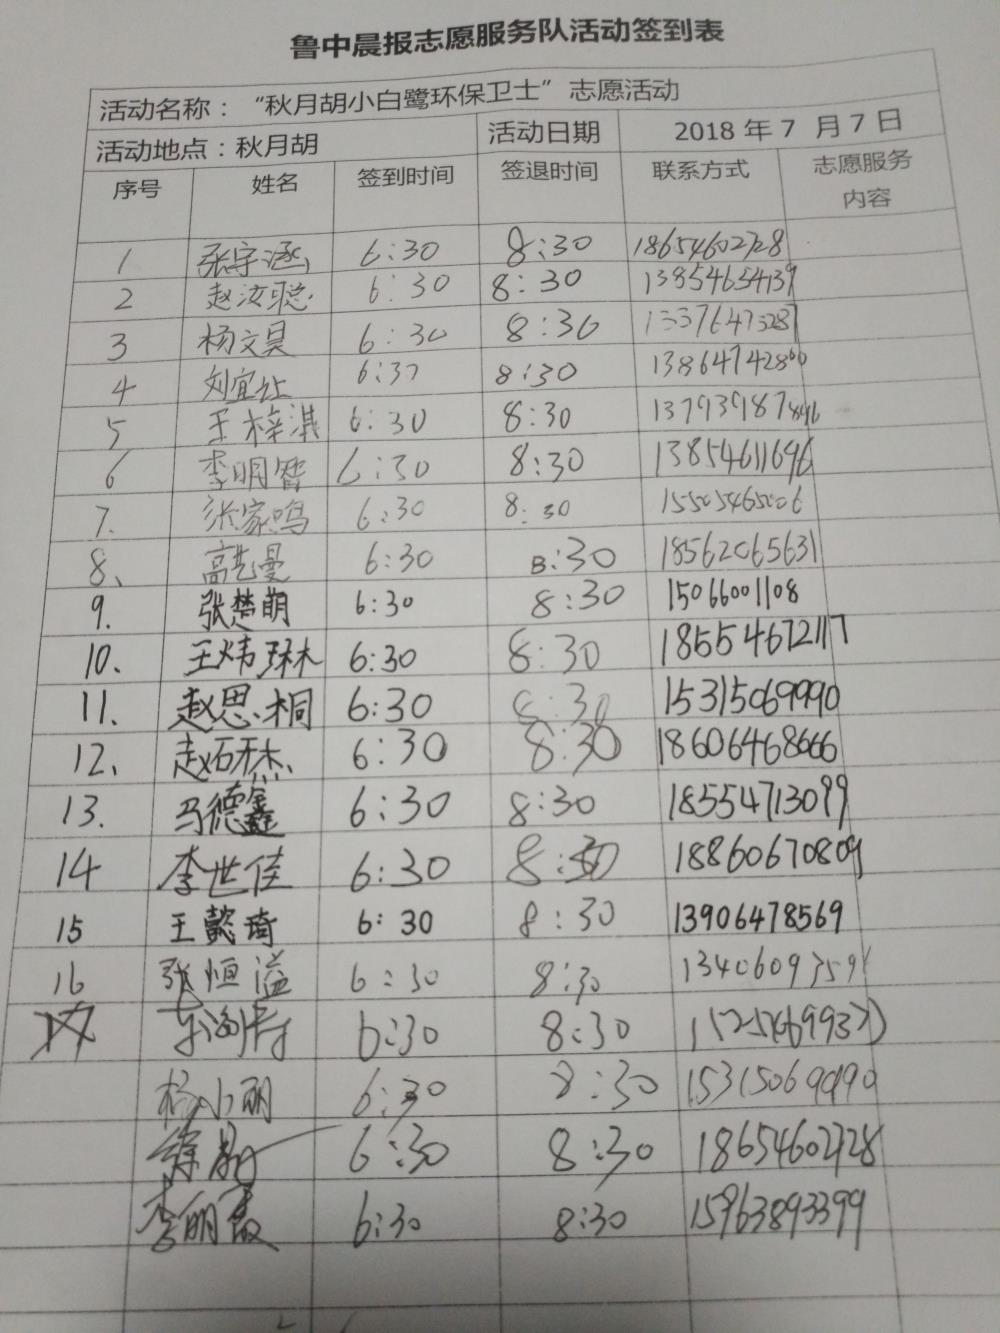 鲁中晨报志愿服务队活动签到表
活动名称：“秋月胡小白鹭环保卫士”志愿活动
活动地点：秋月胡 活动日期 2018 年 7 月 7 日
序号 姓名 签到时间 签退时间 联系方式 志愿服务
内容
1 张宇涵 6:30 8:30 18654602728
2 赵汝聪 6:30 8:30 13854654139
3 杨文昊 6:30 8:30 13376473287
4 刘宜让 6:30 8:30 13864742860
5 王梓淇 6:30 8:30
6 李明智 6:30 8:30 13854611696
7. 张家鸣 6:30 8:30 15505465006
8、 高艺曼 6:30 8:30 18562065631
9. 张楚萌 6:30 8:30 15066001108
10. 王炜琳 6:30 8:30 18554672117
11. 赵思桐 6:30 8:30 15315069990
12、 赵研杰 6:30 8:30 18606468666
13. 马德鑫 6:30 8:30 18554713099
14 李世佳 6:30 8:30 18860670809
15 王懿琦 6:30 8:30 13906478569
16 张恒溢 6:30 8:30
6:30 8:30
杨小丽 6:30 8:30
6:30 8:30 18654602728
李丽霞 6:30 8:30 15963893399